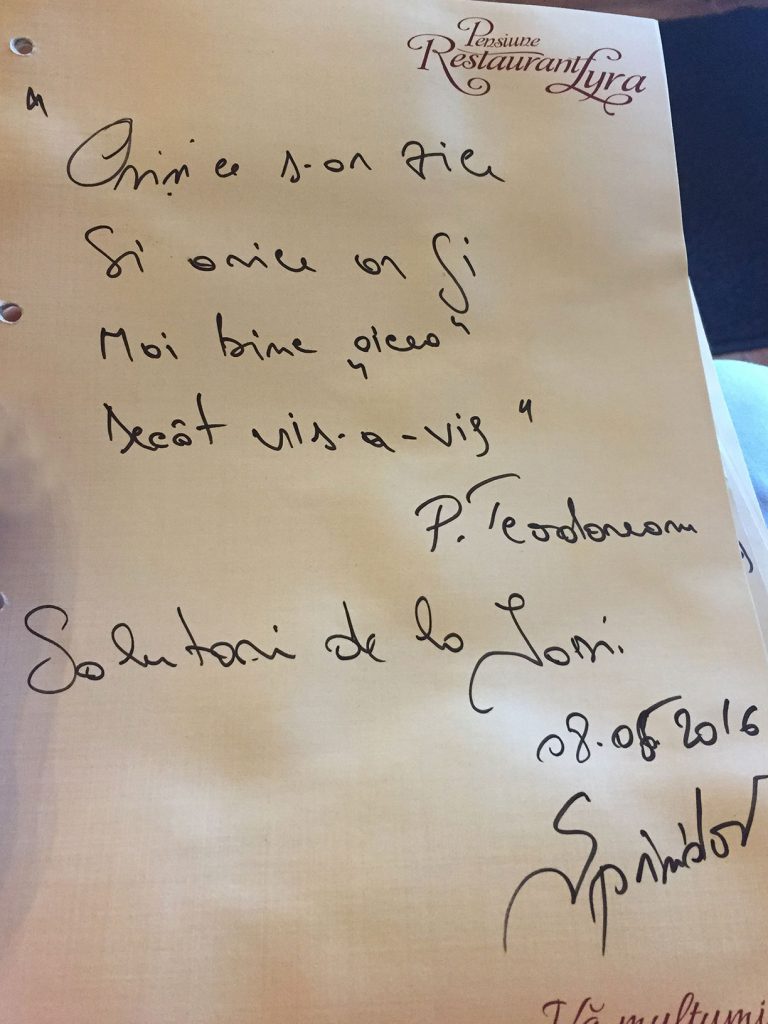 Pensiune
Restaurant Lyra
"Orice s-ar zice
Si orice ar fi
Mai bine „aicea"
Decât vis-a-vis"
P. Teodoreanu
Salutari de la Iasi.
08.05 2016
Vă mulțumi